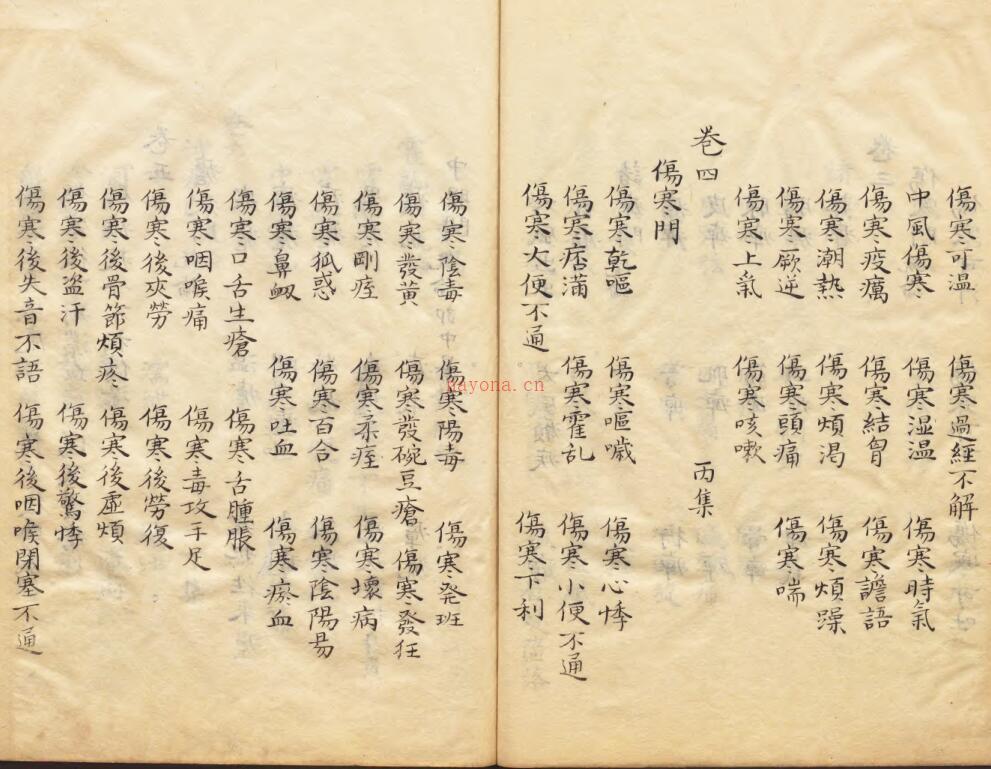 傷寒可溫 傷寒過經不解
中風傷寒 傷寒湿溫 傷寒時氣
傷寒疫癘 傷寒結胷 傷寒譫語
傷寒潮熱 傷寒煩渴 傷寒煩躁
傷寒厥逆 傷寒頭痛 傷寒喘
傷寒上氣 傷寒咳嗽
卷四 丙集
傷寒門
傷寒乾嘔 傷寒嘔噦 傷寒心悸
傷寒痞滿 傷寒霍乱 傷寒小便不通
傷寒大便不通 傷寒下利
傷寒陰毒 傷寒陽毒 傷寒発班
傷寒發黃 傷寒發碗豆瘡 傷寒發狂
傷寒剛痓 傷寒柔痓 傷寒壞病
傷寒狐惑 傷寒百合 傷寒陰陽昜
傷寒鼻衂 傷寒吐血 傷寒瘀血
傷寒口舌生瘡 傷寒舌腫脹
傷寒咽喉痛 傷寒毒攻手足
傷寒後夾勞 傷寒後勞復
傷寒後骨節煩疼 傷寒後虛煩
傷寒後盜汗 傷寒後驚悸
傷寒後失音不語 傷寒後咽喉閉塞不通
hayona.cn